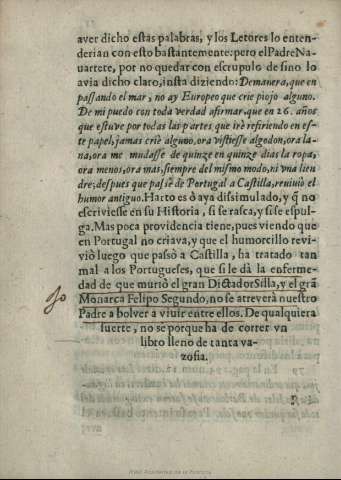 aver dicho estas palabras, y los Letores lo enten-
derian con esto bastantemente: pero el Padre Na-
uartete, por no quedar con escrupulo de si no lo
avia dicho claro, insta diziendo: Demanera, que en
passando el mar, no ay Europeo que crie piojo alguno.
De mi puedo con toda verdad afirmar, que en 26. años
que estuve por todas las partes que irè refiriendo en es-
te papel, jamas criè alguno, ora vistiesse algodon, ora la-
na, ora me mudasse de quinze en quinze dias la ropa,
ora menos, ora mas, siempre del mismo modo, ni vna lien
dre; despues que passè de Portugal a Castilla, reuiuiò el
humor antiguo. Harto es ò aya dissimulado, y q̃ no
escriviesse en su Historia, si se rasca, y si se espul-
ga. Mas poca providencia tiene, pues viendo que
en Portugal no criava, y que el humorcillo revi-
viò luego que passò a Castilla, ha tratado tan
mal a los Portugueses, que si le dà la enferme-
dad de que muriò el gran Dictador Silla, y el grã
Monarca Felipo Segundo, no se atreverà nuestro
Padre a bolver a vivir entre ellos. De qualquiera
suerte, no sè porque ha de correr vn
libro lleno de tanta va-
zofia.
Real Academia de la Historia